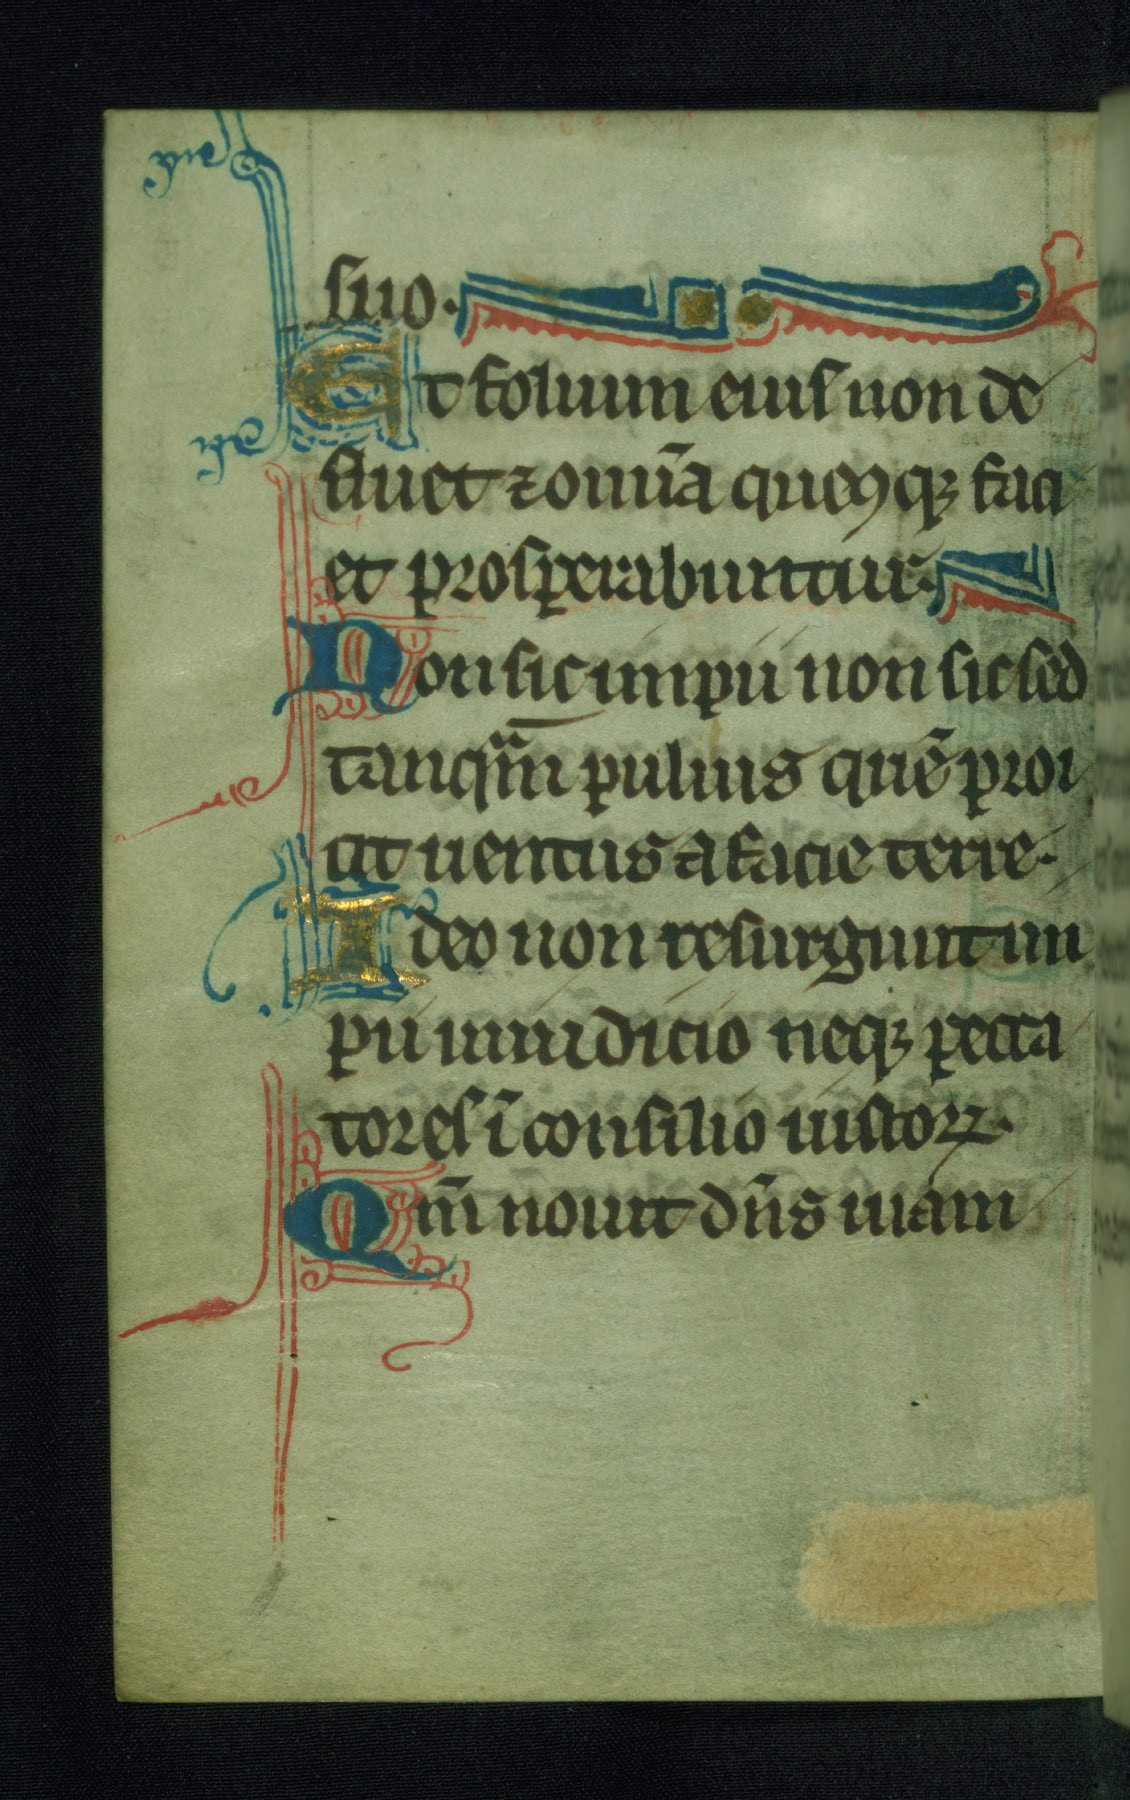 suo.
Et folium eius non de
fluet ⁊ om̄ia quecūqꝫ faci
et prosperabuntur.
Non sic impii non sic sed
tanqͣm puluis quē proi
cit uentus a facie terre.
Ideo non resurgunt im
pii in iudicio neqꝫ pecca
tores ī consilio iustoꝝ.
Qm̄ nouit dn̄s uiam